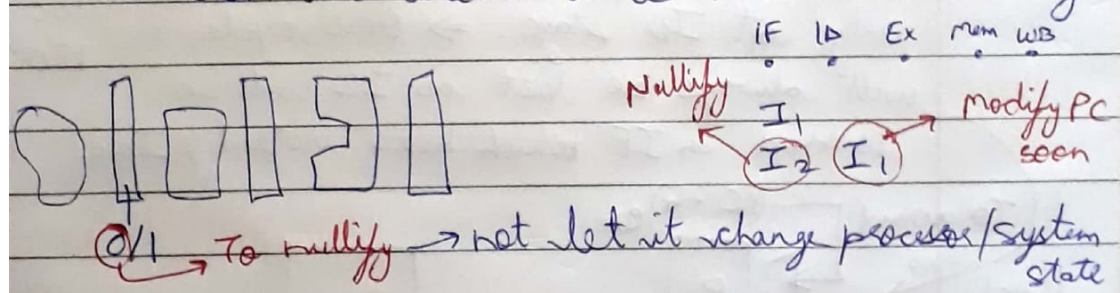 IF ID EX Mem WB
Nullify I1 modify PC
I2 I1 seen
0/1 → To nullify → not let it change processor/system
state